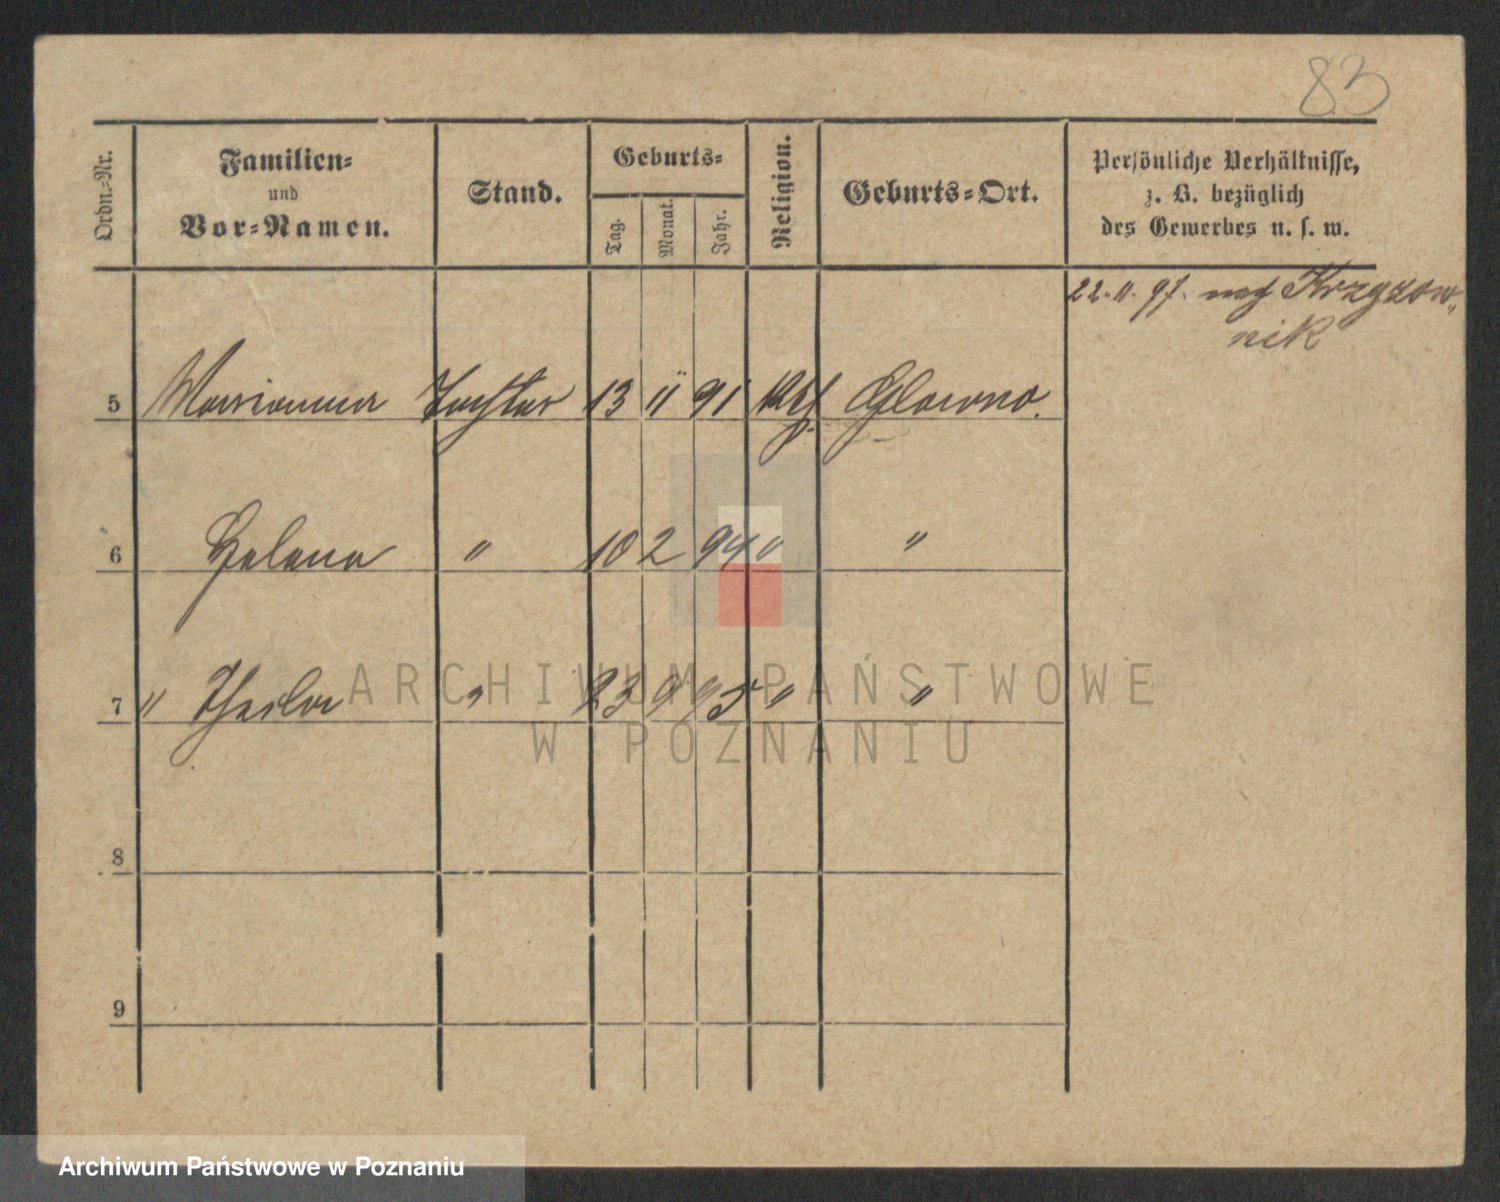 83
Ordn.-Nr.
Familien-
und
Vor-Namen.
Stand.
Geburts-
Tag.
Monat.
Jahr.
Religion.
Geburts-Ort.
Persönliche Verhältnisse,
z. B. bezüglich
des Gewerbes u. s. w.
22. 11. 97. nach Krzyzow-
nik
5 Marianna Tochter 13 11 91 kath Glowno.
6 Helena " 10 2 94 " "
7 " Thekla " 23 9 95 " "
8
9
ARCHIWUM PAŃSTWOWE
W POZNANIU
Archiwum Państwowe w Poznaniu